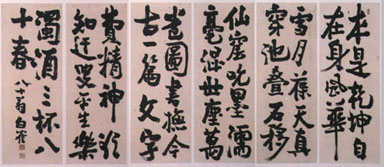 本是乾坤自
在身風華
雪月葆天真
穿池叠石移
仙窟吮墨濡
毫混世塵萬
卷圖書撫今
古一篇文字
費精神欲
知迂叟平生樂
濁酒三杯八
十春
八十翁白